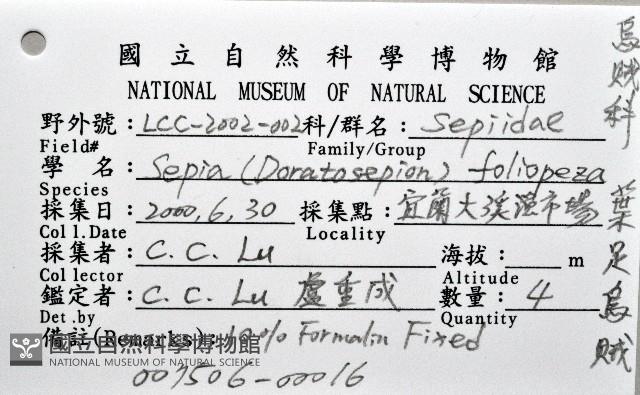 國立自然科學博物館
NATIONAL MUSEUM OF NATURAL SCIENCE
野外號：LCC-2002-002 科/群名：Sepiidae
Field# Family/Group
學 名：Sepia (Doratosepion) foliopeza
Species
採集日：2000, 6, 30 採集點：宜蘭大溪漁市場
Coll.Date Locality
採集者：C. C. Lu 海拔：m
Collector Altitude
鑑定者：C. C. Lu 盧重成 數量：4
Det.by Quantity
備註(Remarks)：10% Formalin Fixed
國立自然科學博物館
NATIONAL MUSEUM OF NATURAL SCIENCE
007506-00016
烏賊科 葉足烏賊